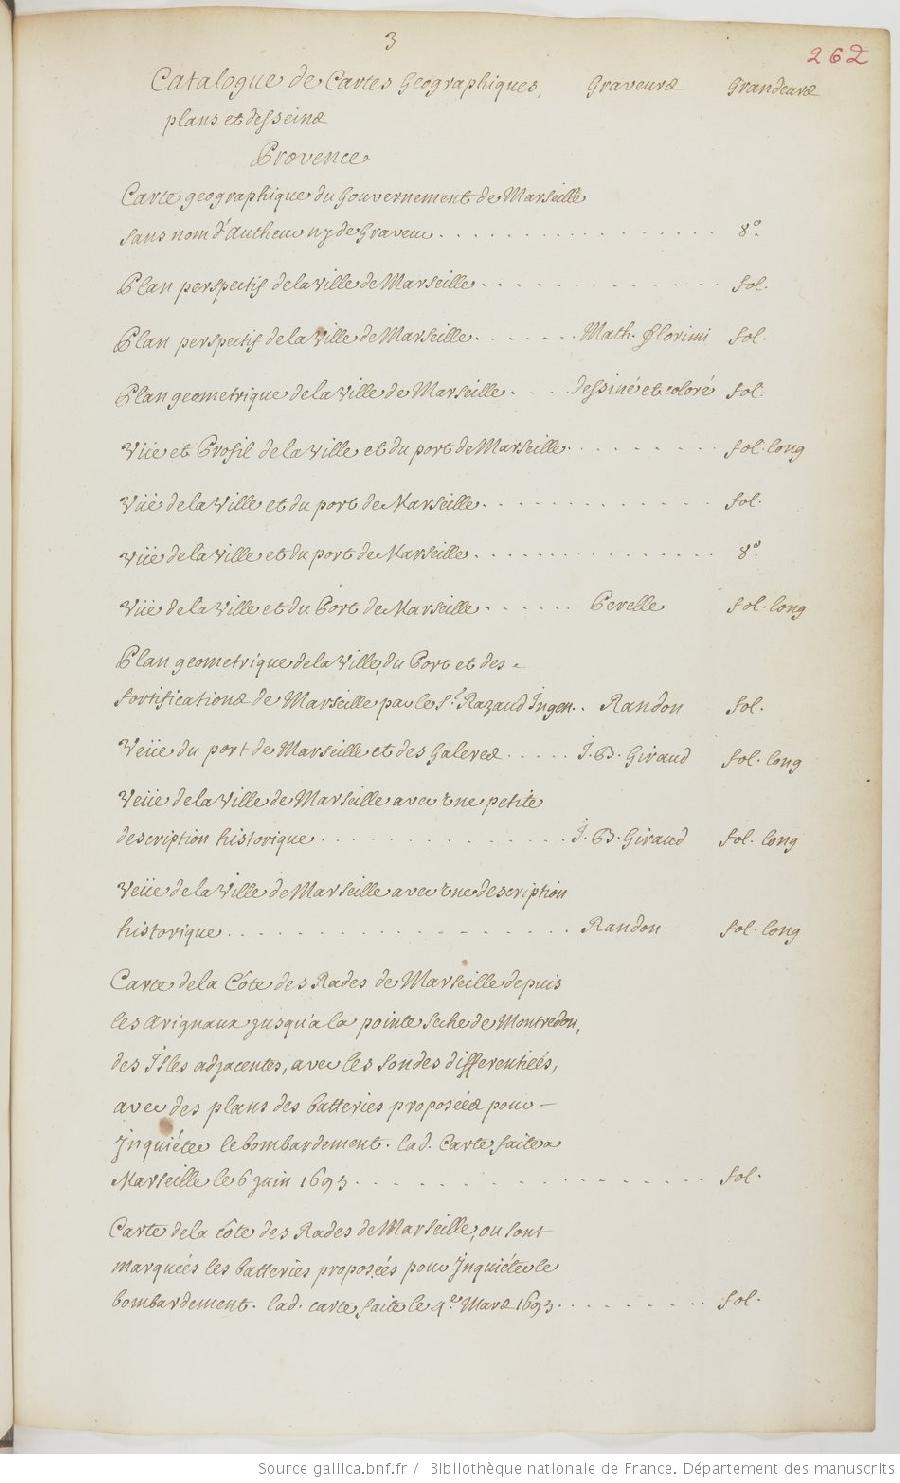 3
262
Catalogue de Cartes Geographiques, Graveurs Grandeurs
plans et desseins
Provence
Carte geographique du Gouvernement de Marseille
sans nom d'Autheur ny de Graveur 8°.
Plan perspectif de la Ville de Marseille fol.
Plan perspectif de la Ville de Marseille Math. Florimi fol.
Plan geometrique de la Ville de Marseille dessiné et coloré fol.
Vüe et Profil de la Ville et du port de Marseille fol. long
Vüe de la Ville et du port de Marseille fol.
Vüe de la Ville et du port de Marseille 8°
Vüe de la Ville et du Port de Marseille Perelle fol. long
Plan geometrique de la Ville, du Port et des
fortifications de Marseille par le Sr. Razaud Ingen. Randon fol.
Veüe du port de Marseille et des Galeres J. B. Giraud fol. long
Veüe de la Ville de Marseille avec une petite
description historique J. B. Giraud fol. long
Veüe de la Ville de Marseille avec une description
historique Randon fol. long
Carte de la Côte des Rades de Marseille depuis
les Avignaux jusqu'a la pointe seche de Montredon,
des Isles adjacentes, avec les sondes differentiées,
avec des plans des batteries proposées pour
Inquiéter le bombardement. lad. Carte faite a
Marseille le 6 juin 1693 fol.
Carte de la côte des Rades de Marseille, ou sont
marquées les batteries proposées pour Inquiéter le
bombardement. lad. carte faite le 4e. Mars 1693 fol.
Source gallica.bnf.fr / Bibliothèque nationale de France. Département des manuscrits